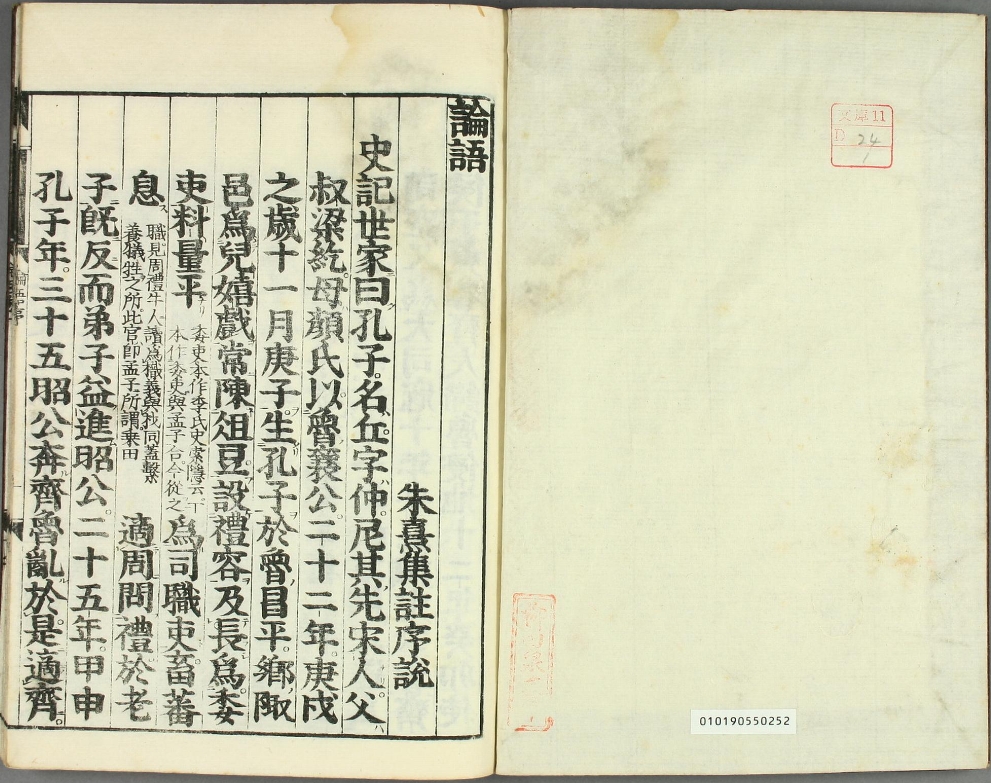 論語
朱熹集註序說
史記世家曰孔子名丘字仲尼其先宋人父
叔梁紇母顏氏以魯襄公二十二年庚戌
之歲十一月庚子生孔子於魯昌平鄉陬
邑爲兒嬉戲常陳俎豆設禮容及長爲委
吏料量平
委吏本作季氏史索隱云一
本作委吏與孟子合今從之
爲司職吏畜蕃
息
職見周禮牛人讀爲樴義與杙同蓋繫
養犧牲之所此官卽孟子所謂乗田
適周問禮於老
子旣反而弟子益進昭公二十五年甲申
孔子年三十五昭公奔齊魯亂於是適齊
文庫11
D 24
1
010190550252